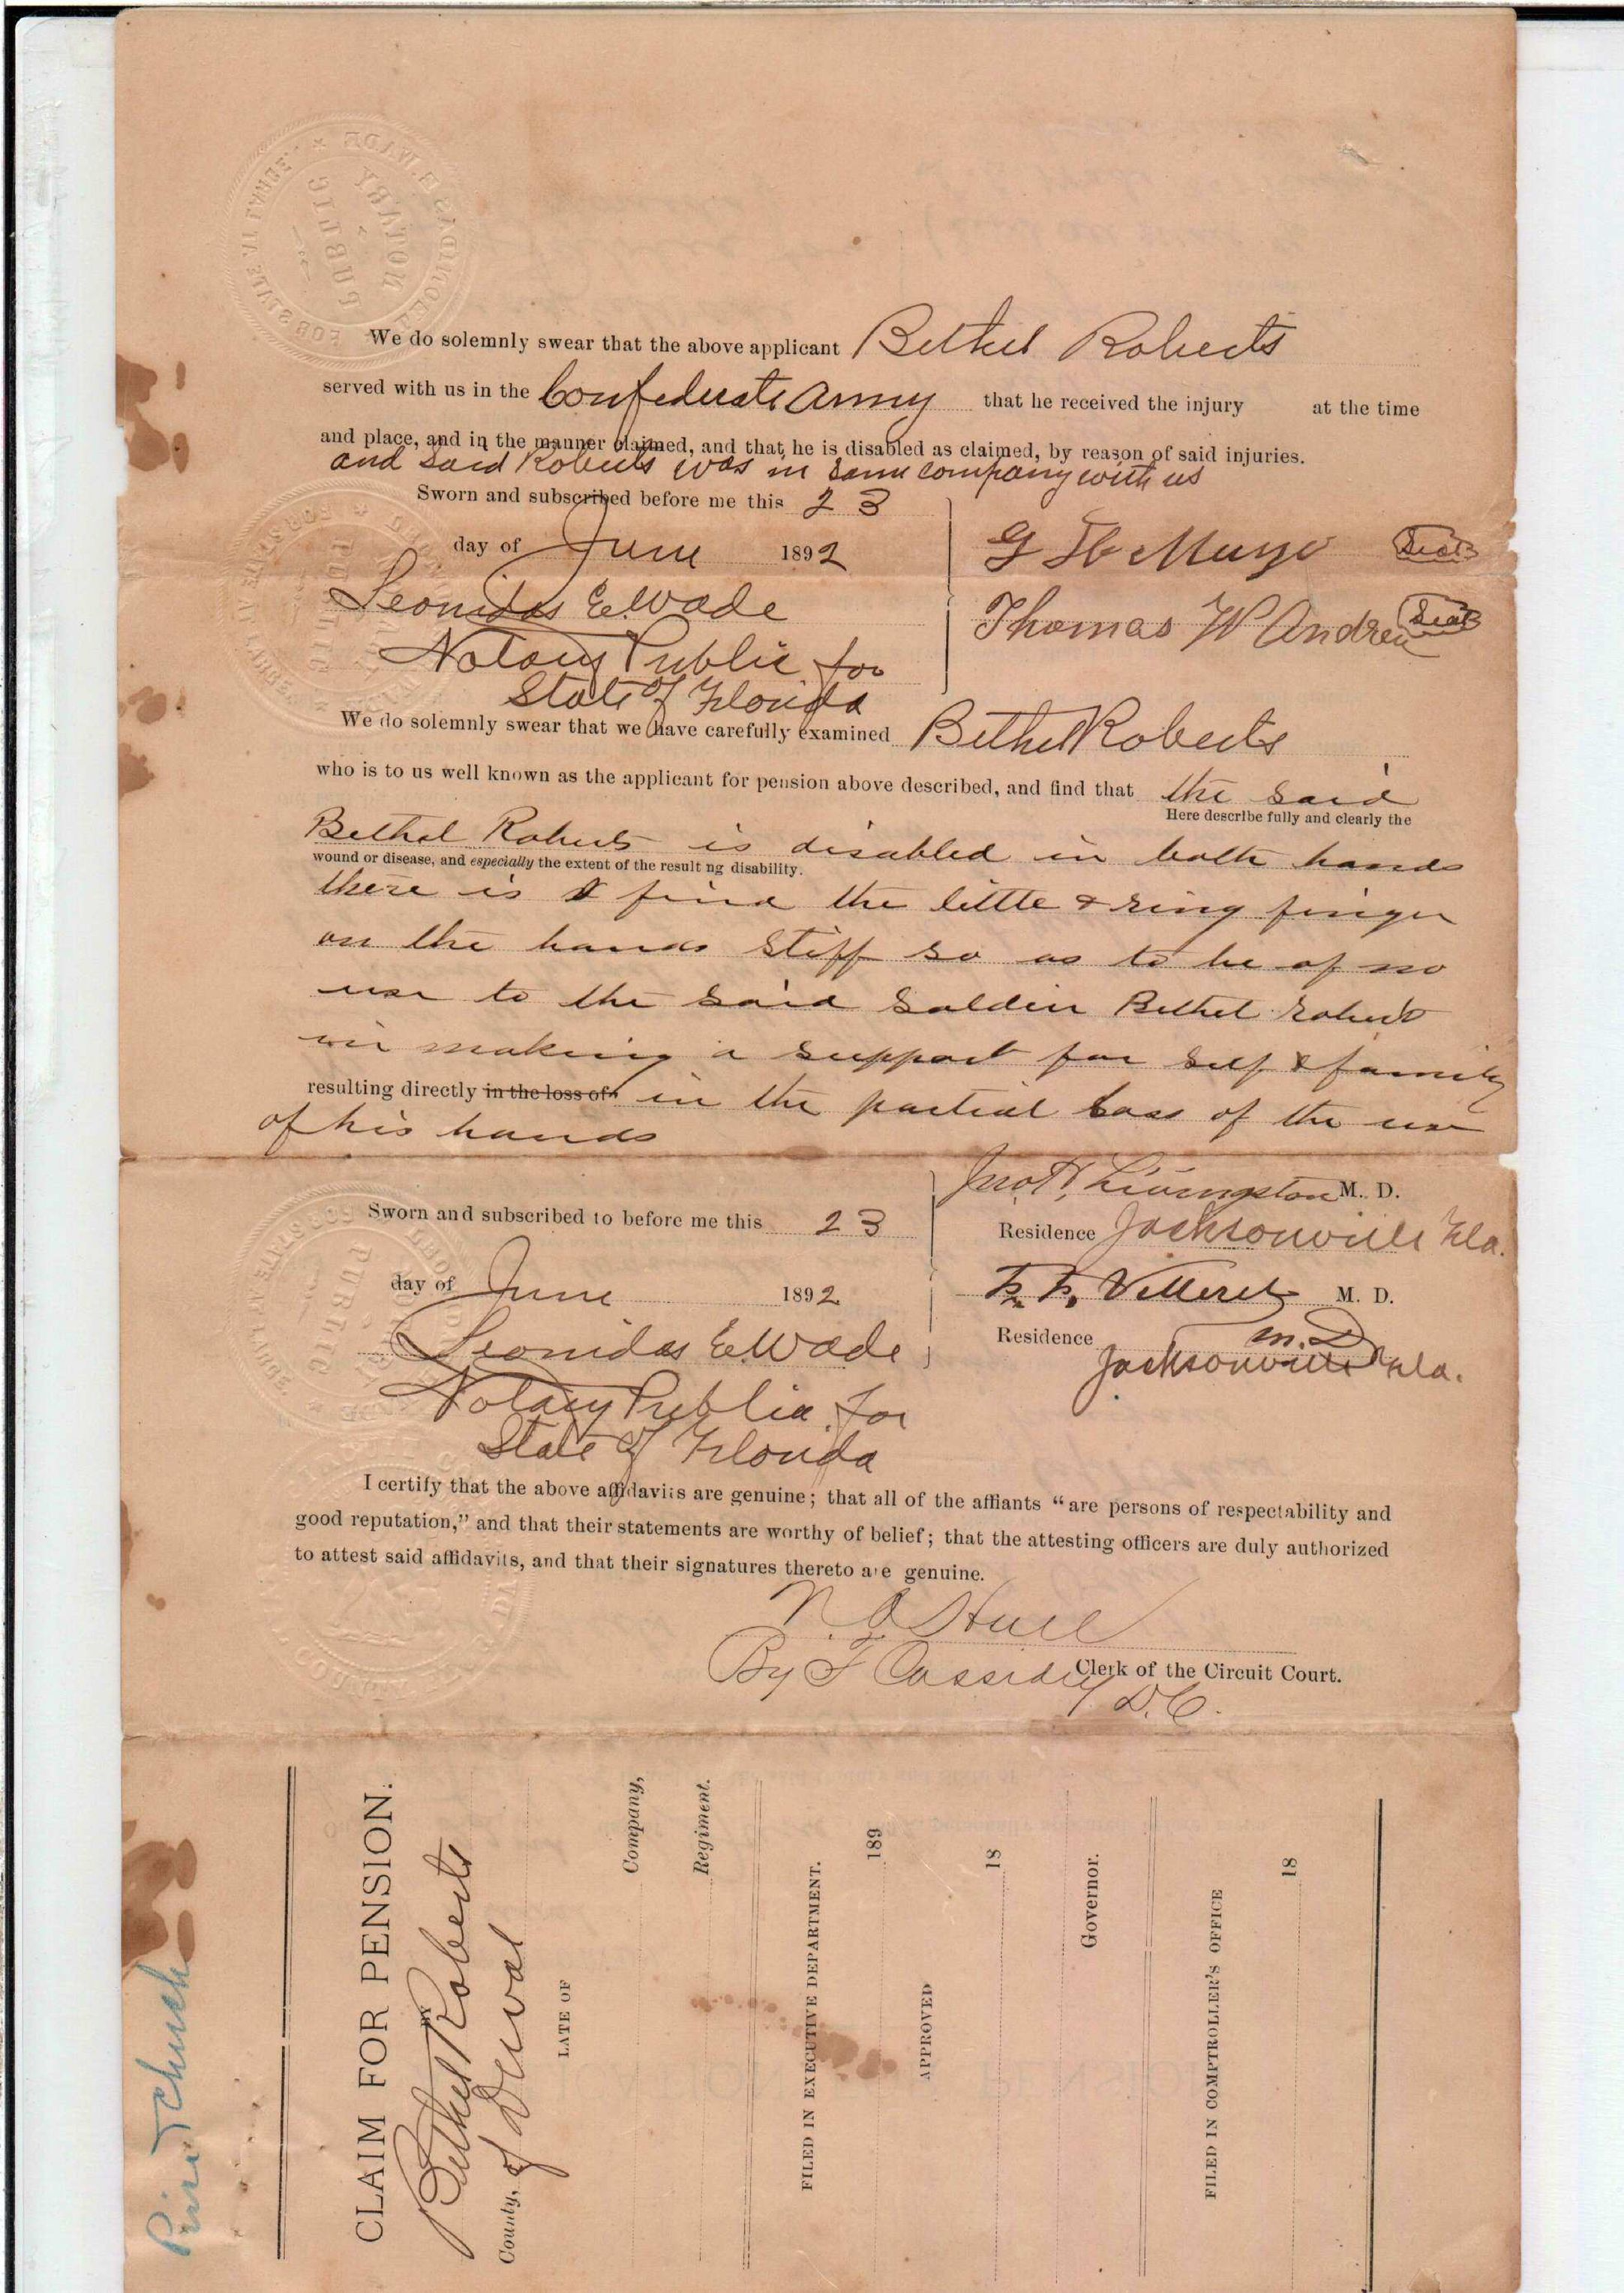 We do solemnly swear that the above applicant Bethel Roberts
served with us in the Confederate Army that he received the injury at the time
and place, and in the manner claimed, and that he is disabled as claimed, by reason of said injuries.
and said Roberts was in same company with us
Sworn and subscribed before me this 23
day of June 1892
G H Mugge Seal
Leonidas E. Wade
Thomas W Andrew Seal
Notary Public for
State of Florida
We do solemnly swear that we have carefully examined Bethel Roberts
who is to us well known as the applicant for pension above described, and find that the said
Here describe fully and clearly the
Bethel Roberts is disabled in both hands
wound or disease, and especially the extent of the result ng disability.
there is I find the little & ring finger
on the hands stiff so as to be of no
use to the said Soldier Bethel Roberts
in making a support for self & family
resulting directly in the loss of in the partial loss of the use
of his hands
Jno H. Livingston M. D.
Sworn and subscribed to before me this 23
Residence Jacksonville Fla.
day of June 1892
M. D.
Leonidas E. Wade
Residence M.D
Jacksonville Fla.
Notary Public for
State of Florida
I certify that the above affidavits are genuine; that all of the affiants "are persons of respectability and
good reputation," and that their statements are worthy of belief; that the attesting officers are duly authorized
to attest said affidavits, and that their signatures thereto are genuine.
Hull
By F Cassidey Clerk of the Circuit Court.
D.C.
CLAIM FOR PENSION.
Bethel Roberts
County, of Duval
LATE OF
Company,
Regiment.
FILED IN EXECUTIVE DEPARTMENT.
189
APPROVED
18
Governor.
FILED IN COMPTROLLER'S OFFICE
18